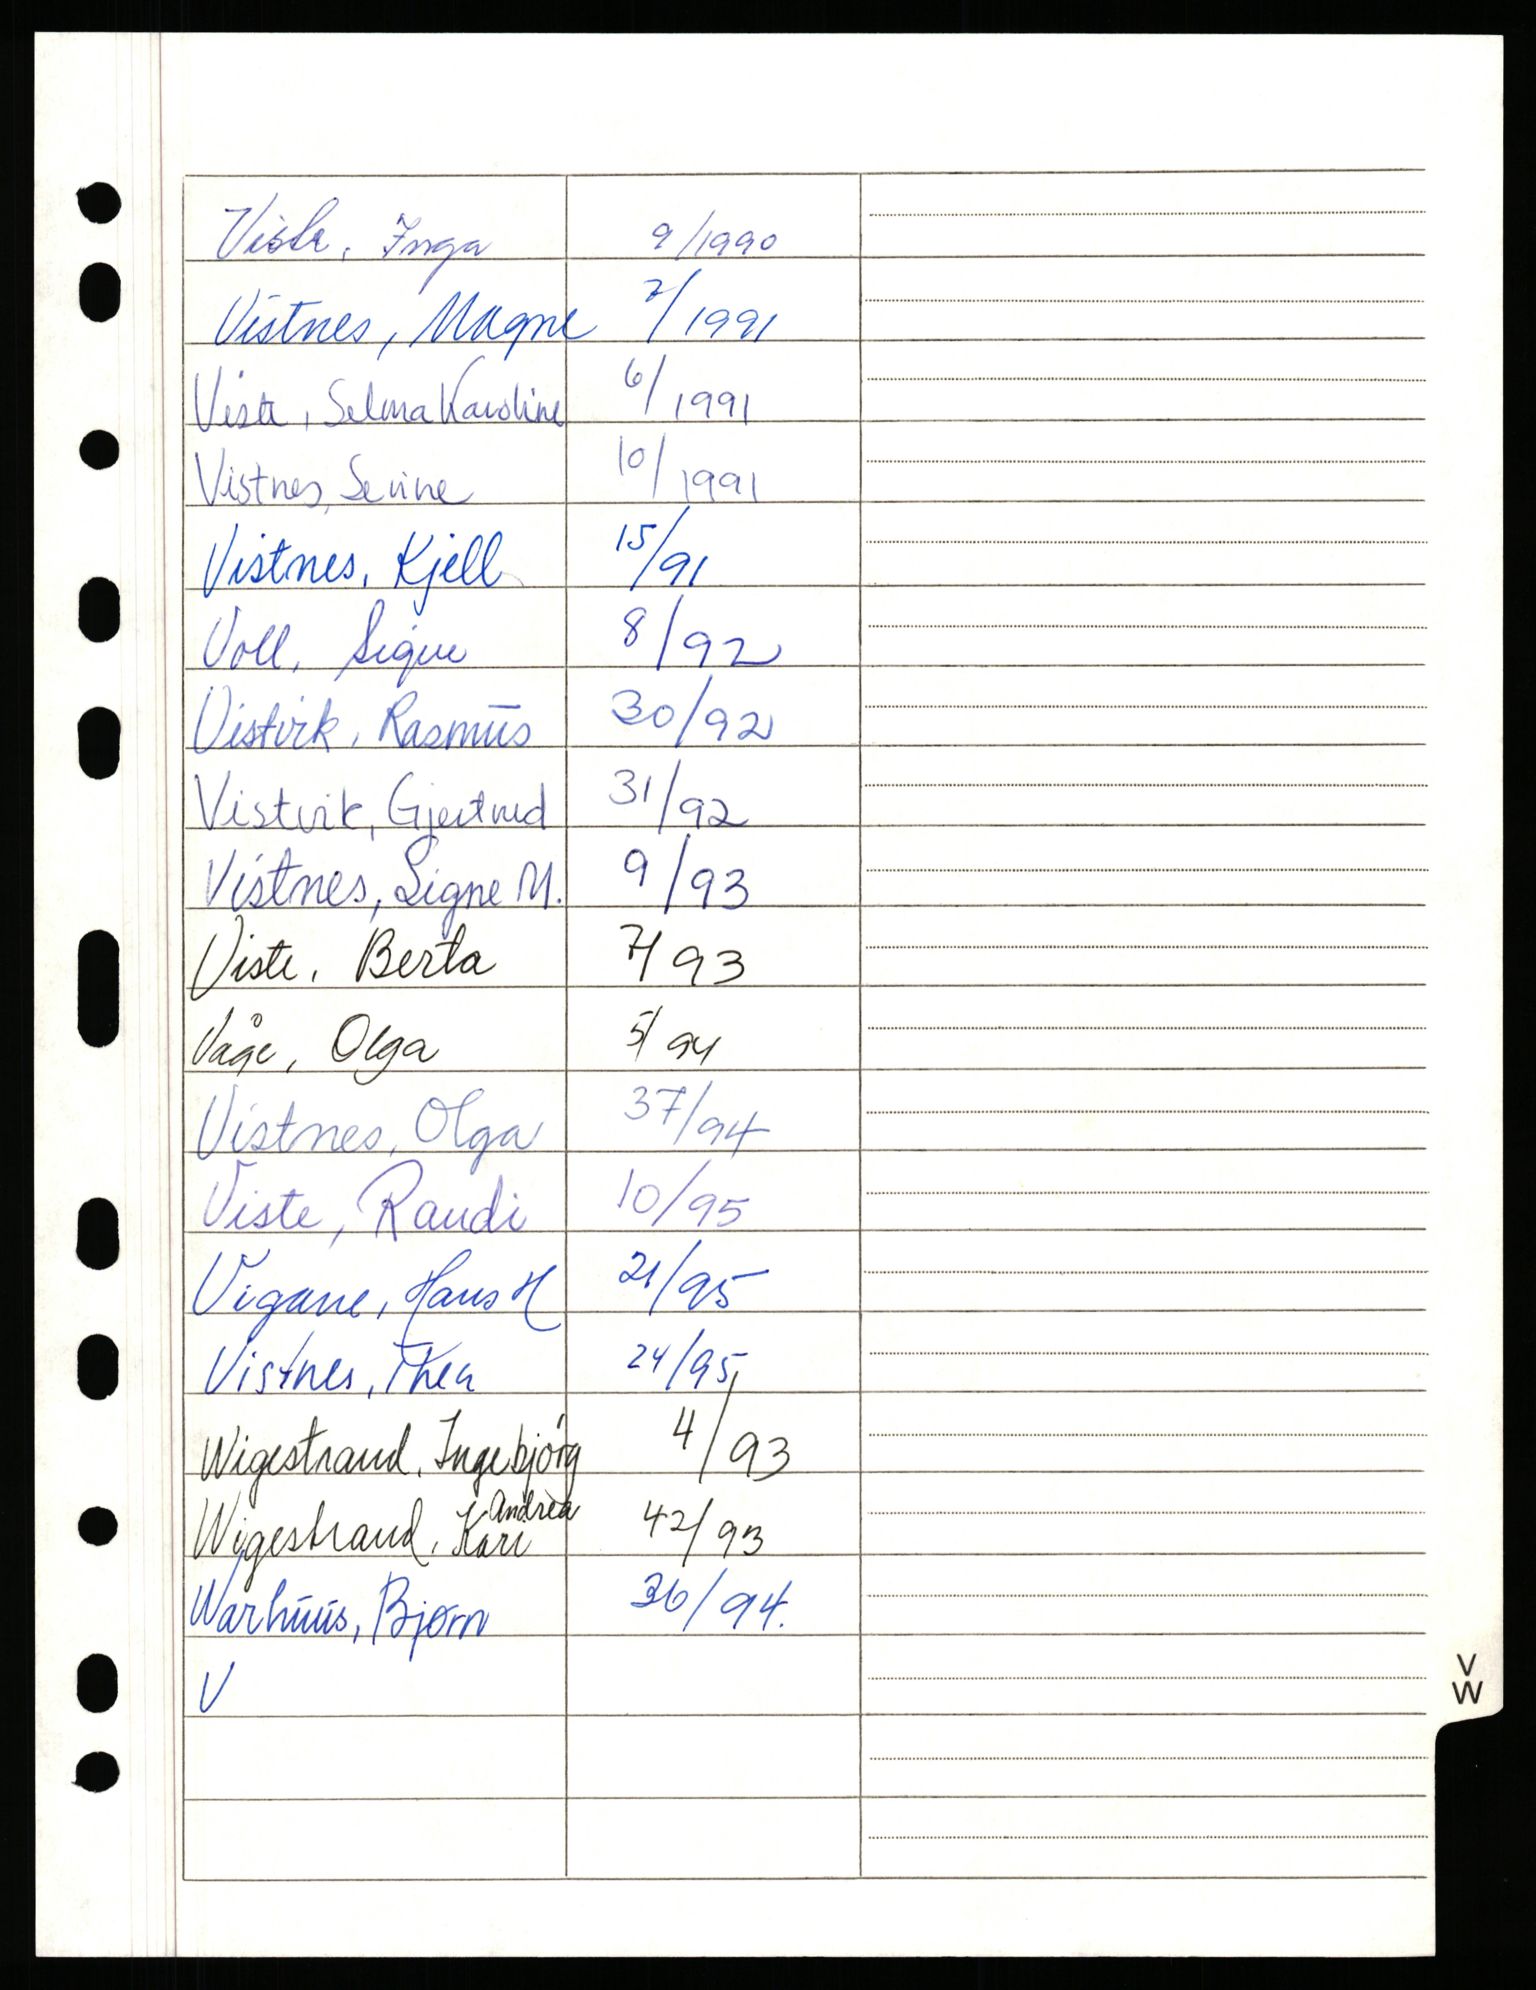 Viste, Inga 9/1990
Vistnes, Magne 7/1991
Viste, Selma Karoline 6/1991
Vistnes, Sevine 10/1991
Vistnes, Kjell 15/91
Voll, Signe 8/92
Vistvik, Rasmus 30/92
Vistvik, Gjertrud 31/92
Vistnes, Signe M. 9/93
Viste, Berta 7/93
Våge, Olga 5/94
Vistnes, Olga 37/94
Viste, Randi 10/95
Vigane, Hans H 21/95
Vistnes, Thea 24/95
Wigestrand, Ingebjörg 4/93
Andrea
Wigestrand, Kari 42/93
Warhuus, Bjørn 36/94.
V
V
W